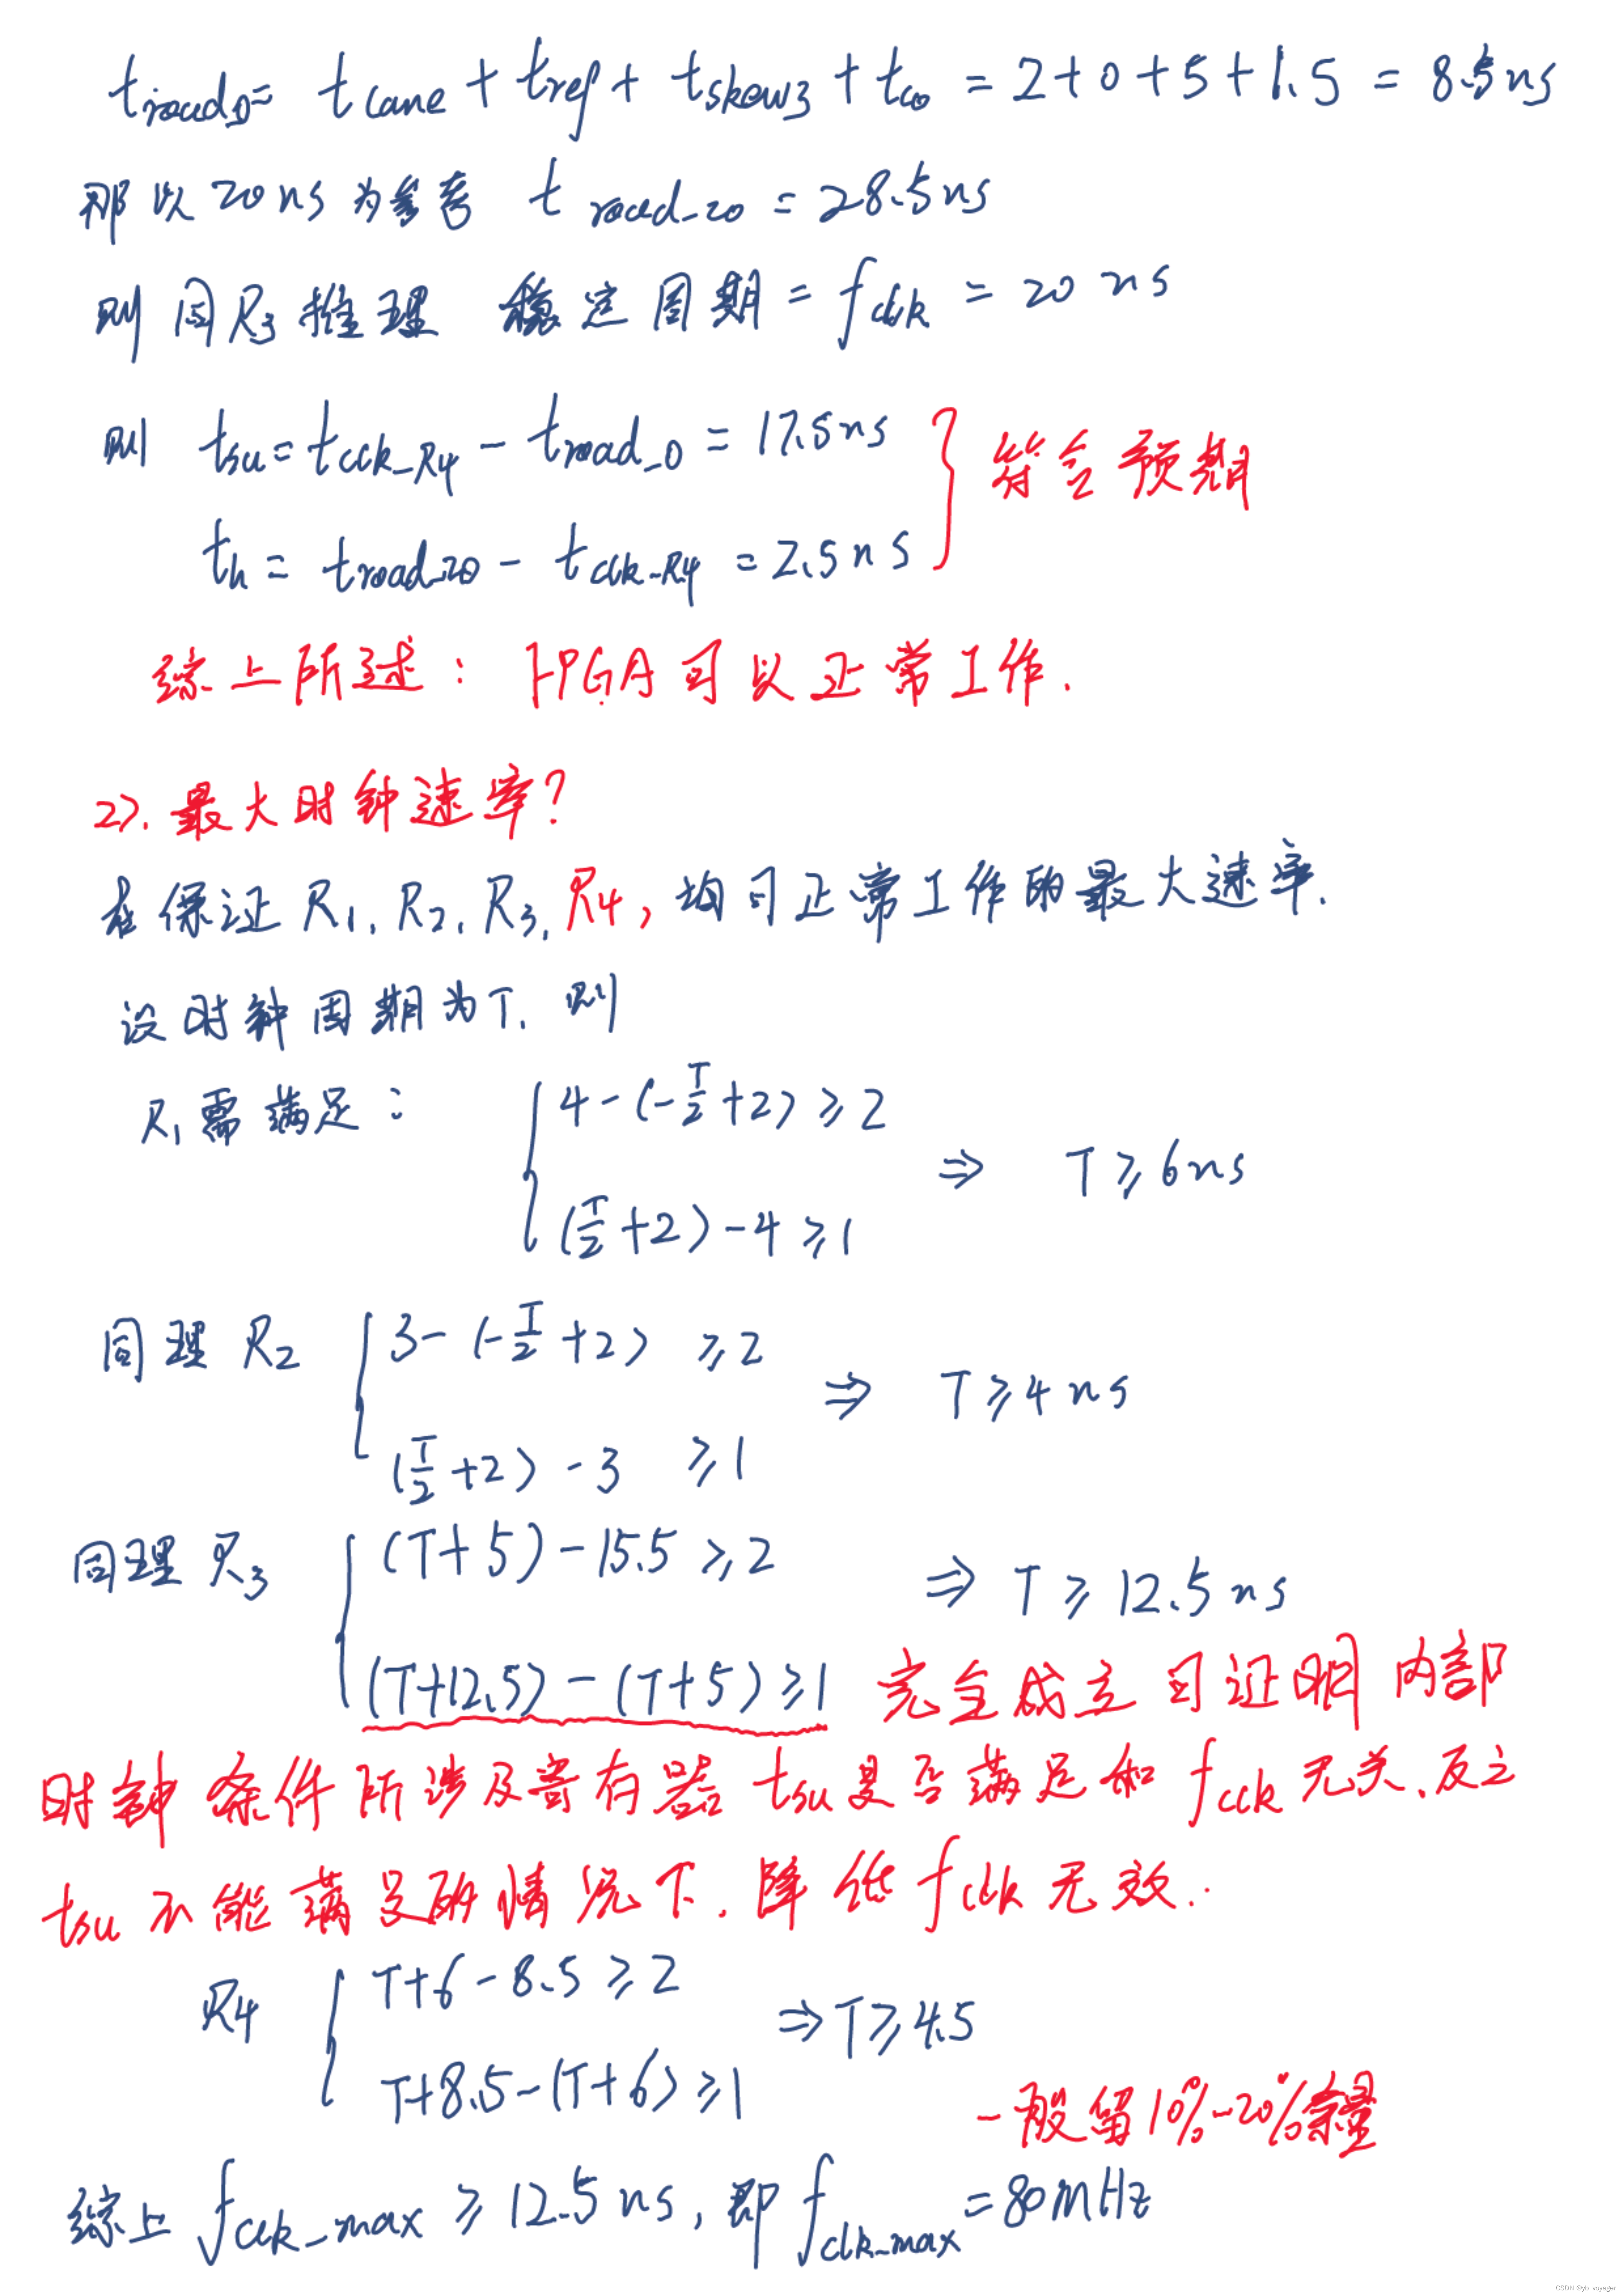 troad_0 = tlane + tref + tskew3 + tco = 2+0+5+1.5 = 8.5ns
那以20ns为参考 troad_20 = 28.5ns
则同R3推理 稳定周期 = fclk = 20ns
则 tsu = tclk_R4 - troad_0 = 17.5ns
th = troad_20 - tclk_R4 = 2.5ns } 符合预期
综上所述: FPGA可以正常工作.
2). 最大时钟速率?
在保证R1, R2, R3, R4, 均可正常工作的最大速率.
设时钟周期为T, 则
R1需满足: { 4-(-T/2+2) ≥ 2
(T/2+2)-4 ≥ 1 ⇒ T ≥ 6ns
同理 R2 { 3-(-T/2+2) ≥ 2
(T/2+2)-3 ≥ 1 ⇒ T ≥ 4ns
同理 R3 { (T+5)-15.5 ≥ 2 ⇒ T ≥ 12.5ns
(T+12.5)-(T+5) ≥ 1 完全成立可证明内部
时钟条件所涉及寄存器tsu是否满足和fclk无关, 反之
tsu不能满足的情况下, 降低fclk无效..
R4 { T+6-8.5 ≥ 2
T+8.5-(T+6) ≥ 1 ⇒ T ≥ 4.5
一般留10%-20%余量
综上 fclk_max ≥ 12.5ns, 即 fclk_max = 80MHz
CSDN @yb_voyager